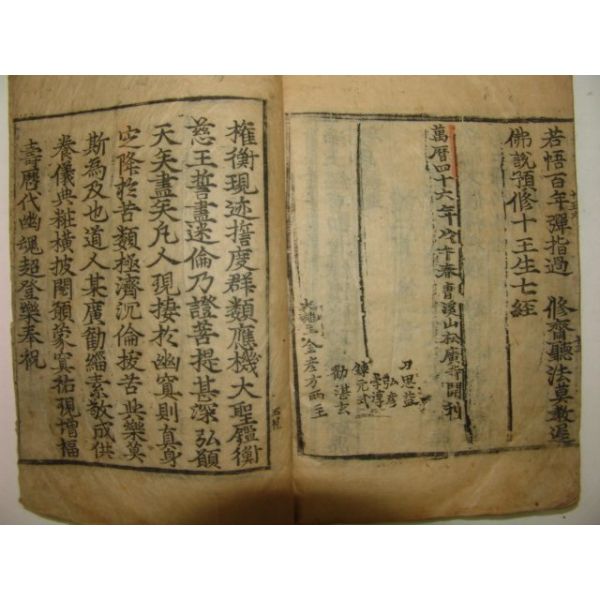 若悟百年彈指過 修齋聽法莫教遲
佛說預修十王生七經
萬曆四十六年戊午春曺溪山松廣寺開刊
刀思益
弘彦
元式
勸湛玄
權衡現迹誓度群類應機大聖鑑衡
慈王誓盡迷倫乃證菩提甚深弘願
天矣盡矣凡人現捿於幽冥則真身
必降於苦類極濟沉倫拔苦與樂莫
斯為及也道人某廣勸緇素敬成供
養儀典粧橫披閱願蒙冥祐現增福
壽曆代幽魂超登樂奉祝